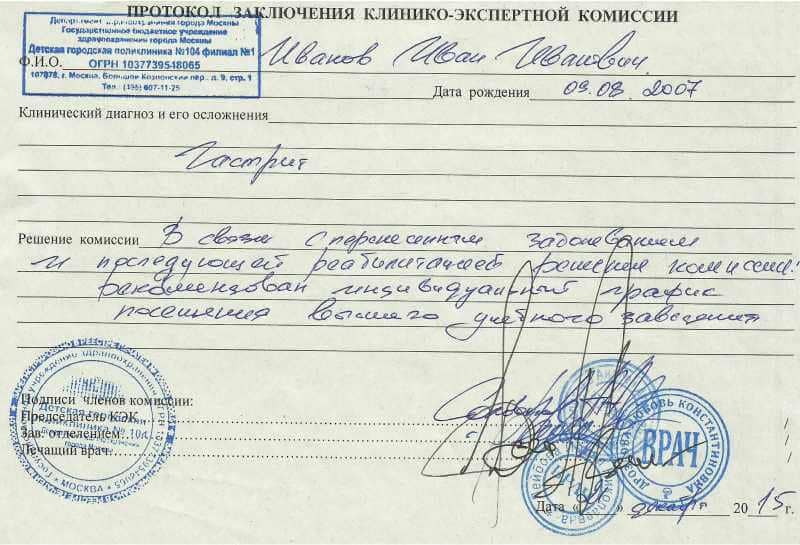 ПРОТОКОЛ ЗАКЛЮЧЕНИЯ КЛИНИКО-ЭКСПЕРТНОЙ КОМИССИИ
Департамент здравоохранения города Москвы
Государственное бюджетное учреждение
здравоохранения города Москвы
Детская городская поликлиника №104 филиал №1
ОГРН 1037739548065
107078, г. Москва, Большой Козловский пер., д. 9, стр. 1
Тел.: (495) 607-11-25
Ф.И.О. Иванов Иван Иванович
Дата рождения 09.08.2007
Клинический диагноз и его осложнения
Гастрит
Решение комиссии В связи с перенесенным заболеванием
и последующей реабилитацией решением комиссии:
рекомендован индивидуальный график
посещения высшего учебного заведения
Подписи членов комиссии:
Председатель КЭК
Зав. отделением:
Лечащий врач:
Детская городская
поликлиника № 104
МОСКВА
ВРАЧ
ЛЮБОВЬ КОНСТАНТИНОВНА
Дата « » декабря 2015 г.